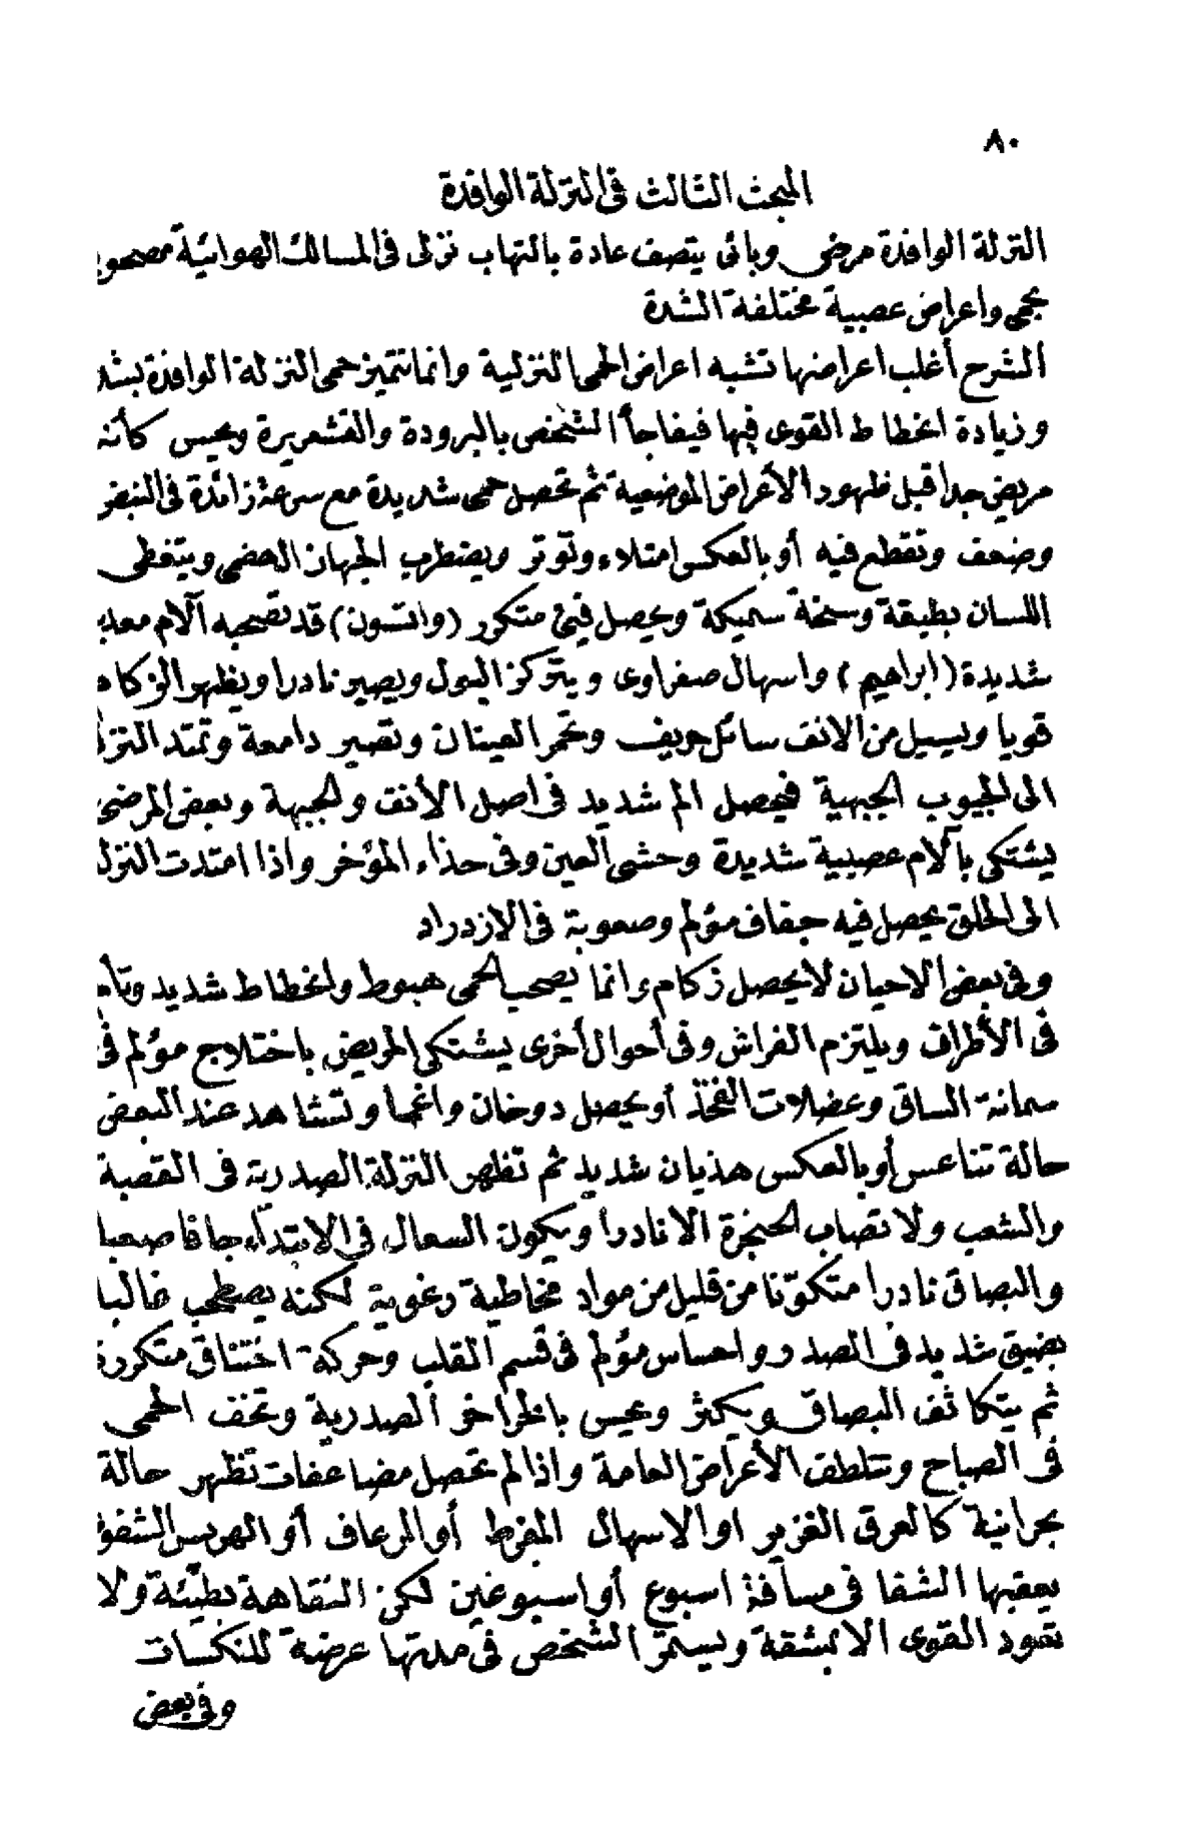 ٨٠
المبحث الثالث فى النزلة الوافدة
النزلة الوافدة مرض وبائى يتصف عادة بالتهاب نزلى فى المسالك الهوائية مصحوبا
بحمى واعراض عصبية مختلفة الشدة
الشرح أغلب اعراضها تشبه اعراض الحمى النزلية وانما تتميز حمى النزلة الوافدة بشد
وزيادة انحطاط القوى فيها فيفاجأ الشخص بالبرودة والقشعريرة ويحس كأنه
مريض جدا قبل ظهور الأعراض الموضعية ثم تحصل حمى شديدة مع سرعة زائدة فى النبض
وضعف وتقطع فيه أو بالعكس امتلاء وتوتر ويضطرب الجهاز الهضمى ويتغطى
اللسان بطبقة وسخة سميكة ويحصل قيئ متكرر (واتسون) قد تصحبه آلام معديـ
شديدة (ابراهيم) واسهال صفراوى ويتركز البول ويصير نادرا ويظهر الزكام
قويا ويسيل من الانف سائل حريف وتحمر العينان وتصير دامعة وتمتد النزلـ
الى الجيوب الجبهية فيحصل الم شديد فى اصل الأنف والجبهة وبعض المرضى
يشتكى بآلام عصبية شديدة وحشى العين وفى حذاء المؤخر واذا امتدت النزلـ
الى الحلق يحصل فيه جفاف مؤلم وصعوبة فى الازدراد
وفى بعض الاحيان لا يحصل زكام وانما يصحب الحمى هبوط وانحطاط شديد وتألم
فى الأطراف ويلتزم الفراش وفى أحوال أخرى يشتكى المريض باختلاج مؤلم فى
سمانة الساق وعضلات الفخذ أو يحصل دوخان واغما وتشاهد عند البعض
حالة تناعس أو بالعكس هذيان شديد ثم تظهر النزلة الصدرية فى القصبة
والشعب ولا تصاب الحنجرة الا نادرا ويكون السعال فى الابتداء جافا صعبا
والبصاق نادرا متكوّنا من قليل من مواد مخاطية رغوية لكنه يصطحب غالبا
بضيق شديد فى الصدر واحساس مؤلم فى قسم القلب وحركة اختناق متكررة
ثم يتكاثف البصاق ويكثر ويحس بالخراخر الصدرية وتخف الحمى
فى الصباح وتتلطف الأعراض العامة واذا لم تحصل مضاعفات تظهر حالة
بحرانية كالعرق الغزير او الاسهال المفرط أو الرعاف أو الهربس الشفو
يعقبها الشفا فى مسافة اسبوع أو اسبوعين لكن النقاهة بطيئة ولا
تعود القوى الا بمشقة ويستمر الشخص فى مدتها عرضة للنكسات
وفى بعض